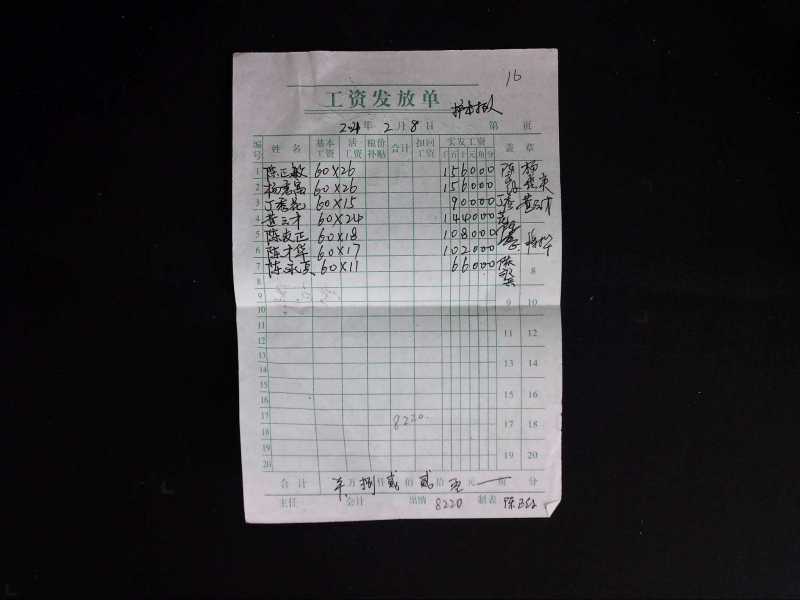 16
工资发放单
年 2月8日 第 班
编号 姓名 基本工资 活工资 粮价补贴 合计 扣回工资 实发工资 千百十元角分 盖章
1 陈正敏 60×26 156000
2 杨秀昌 60×26 156000
3 丁秀花 60×15 90000
4 黄三才 60×24 144000 黄三才
5 陈友正 60×18 108000
6 陈才华 60×17 102000
7 陈永贡 60×11 66000
8 8
9 9 10
10
11 11 12
12
13 13 14
14
15 15 16
16
17 8220 17 18
18
19 19 20
20
合计 万捌仟贰佰贰拾 元 角 分
主任 会计 出纳 8220 制表